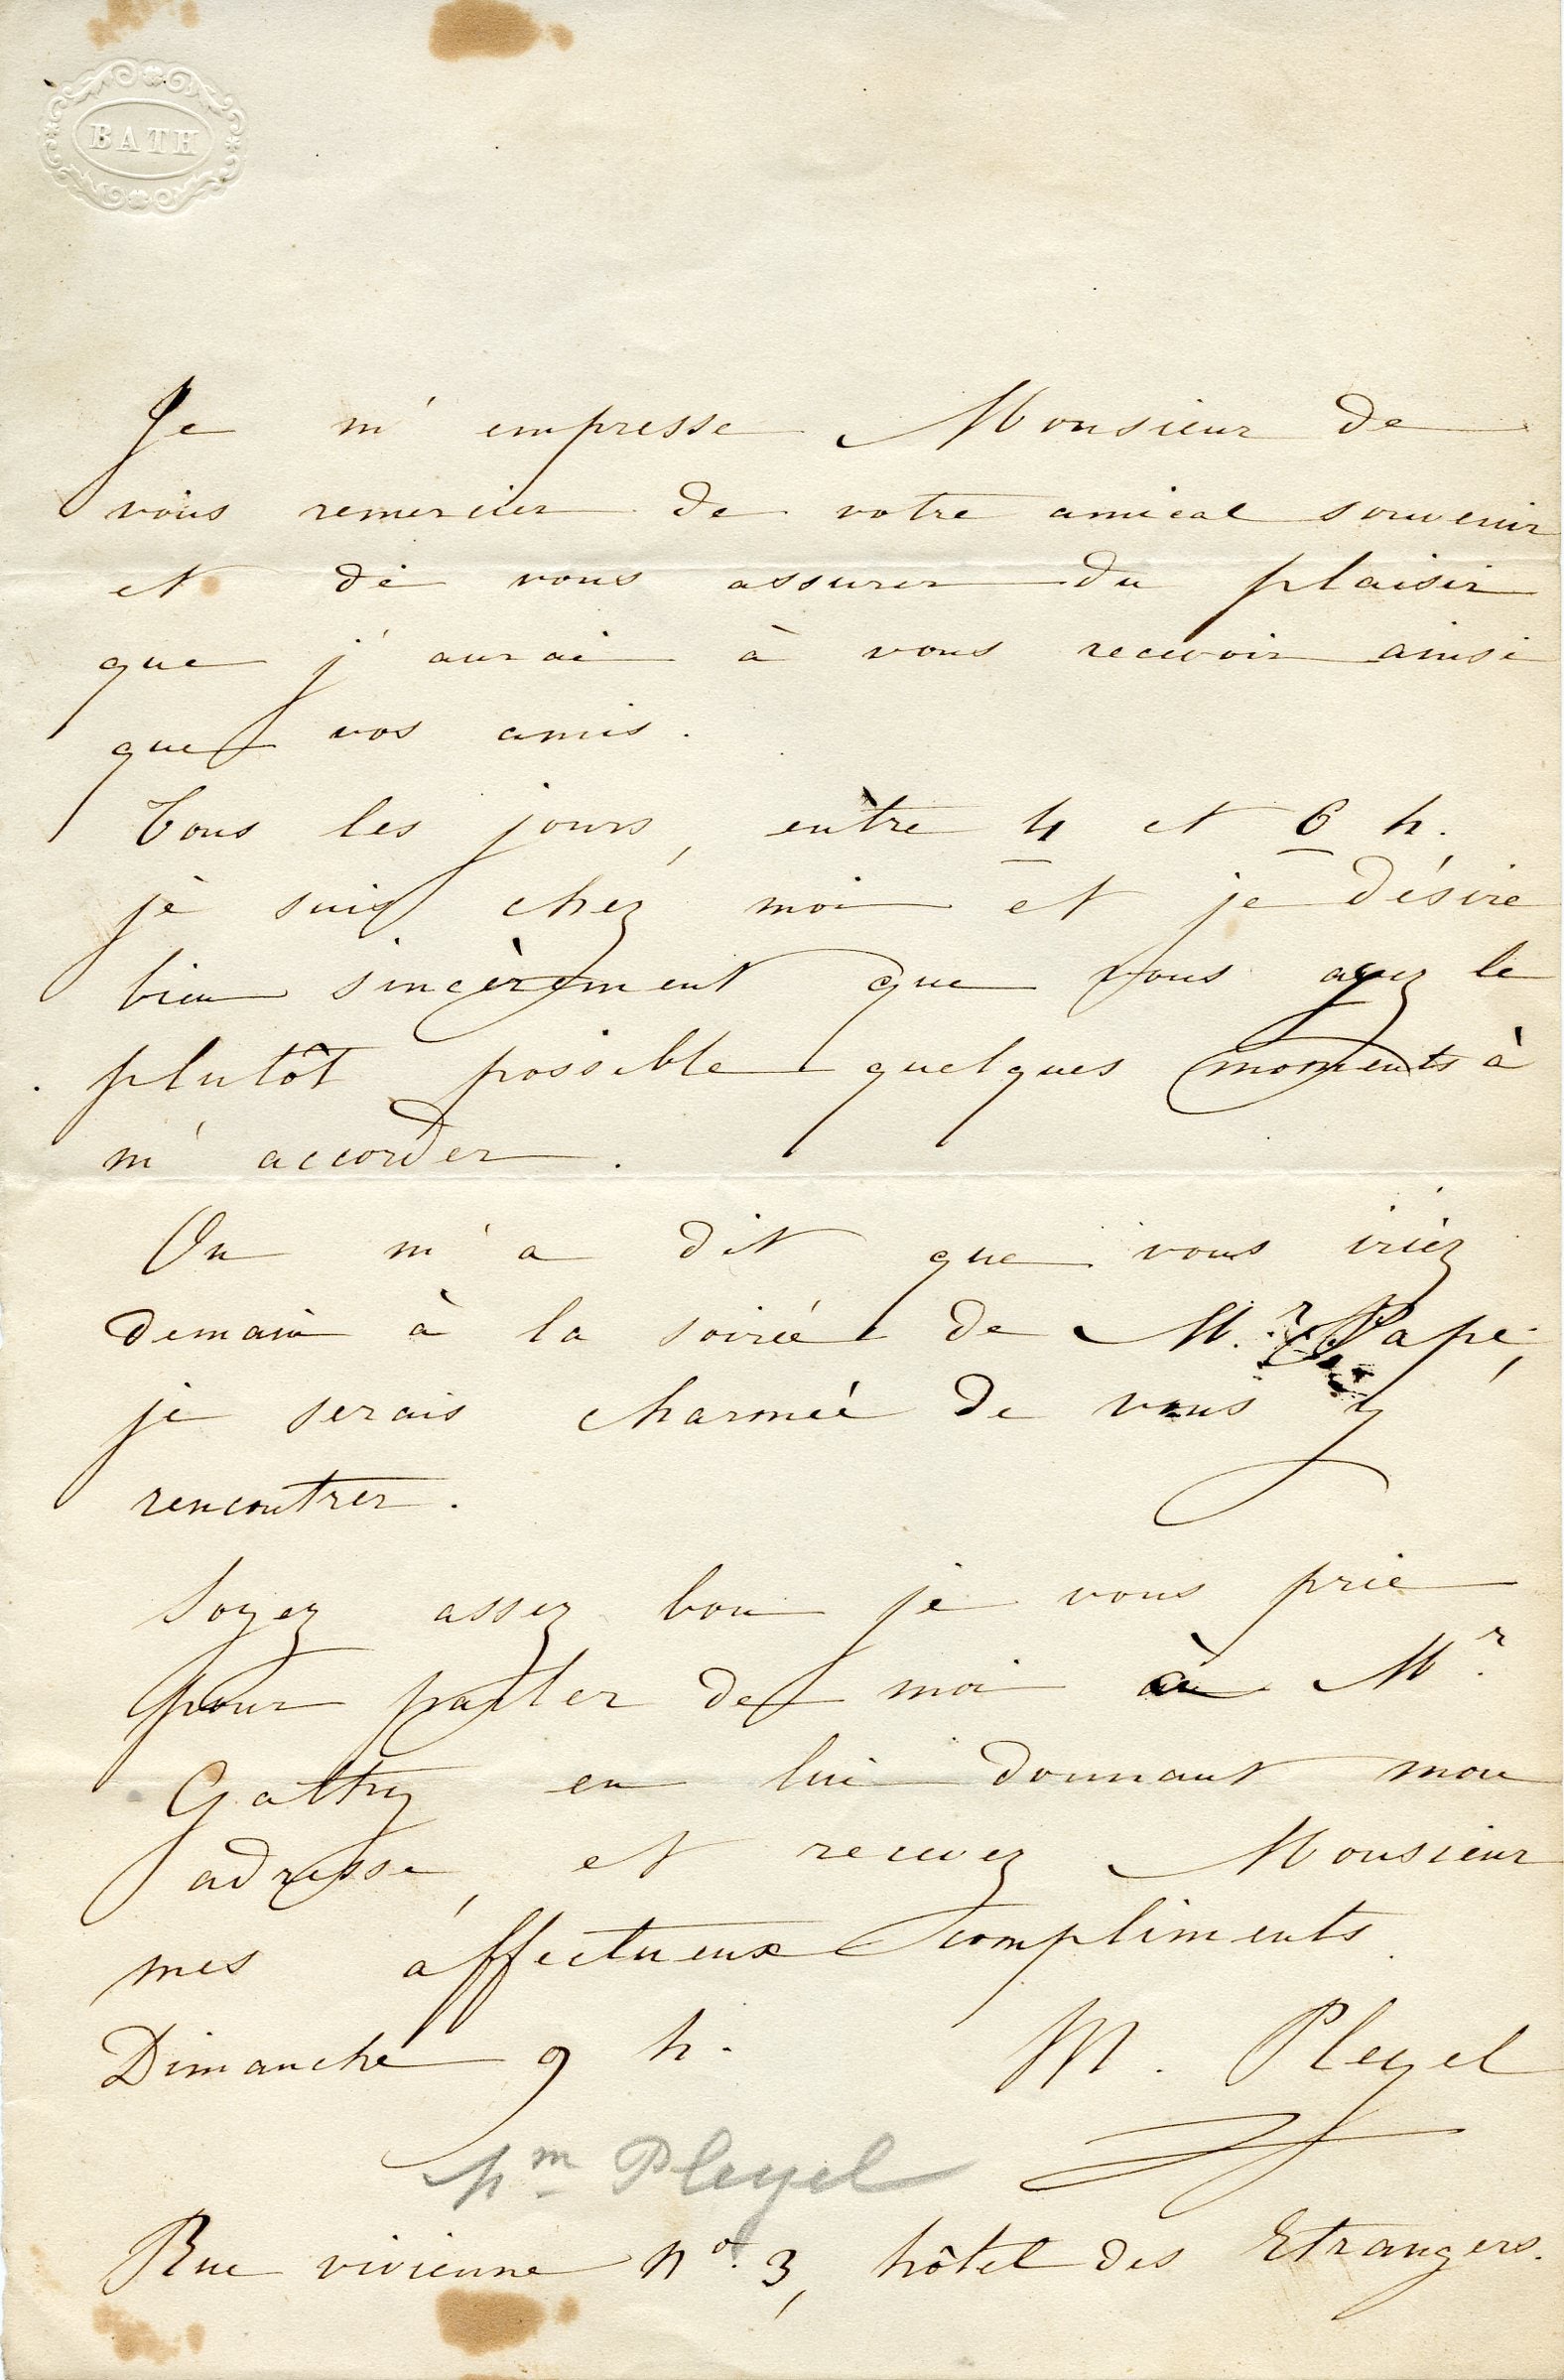 BATH
Je m'empresse Monsieur de
vous remercier de votre amical souvenir
et de vous assurer du plaisir
que j'aurai à vous recevoir ainsi
que vos amis.
Tous les jours, entre 4 et 6 h.
je suis chez moi et je désire
bien sincèrement que vous ayez le
plutôt possible quelques moments à
m'accorder.
On m'a dit que vous iriez
demain à la soirée de M.r Pape,
je serais charmée de vous y
rencontrer.
Soyez assez bon je vous prie
pour parler de moi à Mr.
Gathy en lui donnant mon
adresse, et recevez Monsieur
mes affectueux compliments.
Dimanche 9 h. M. Pleyel
Pleyel
Rue vivienne no. 3, hôtel des Etrangers.